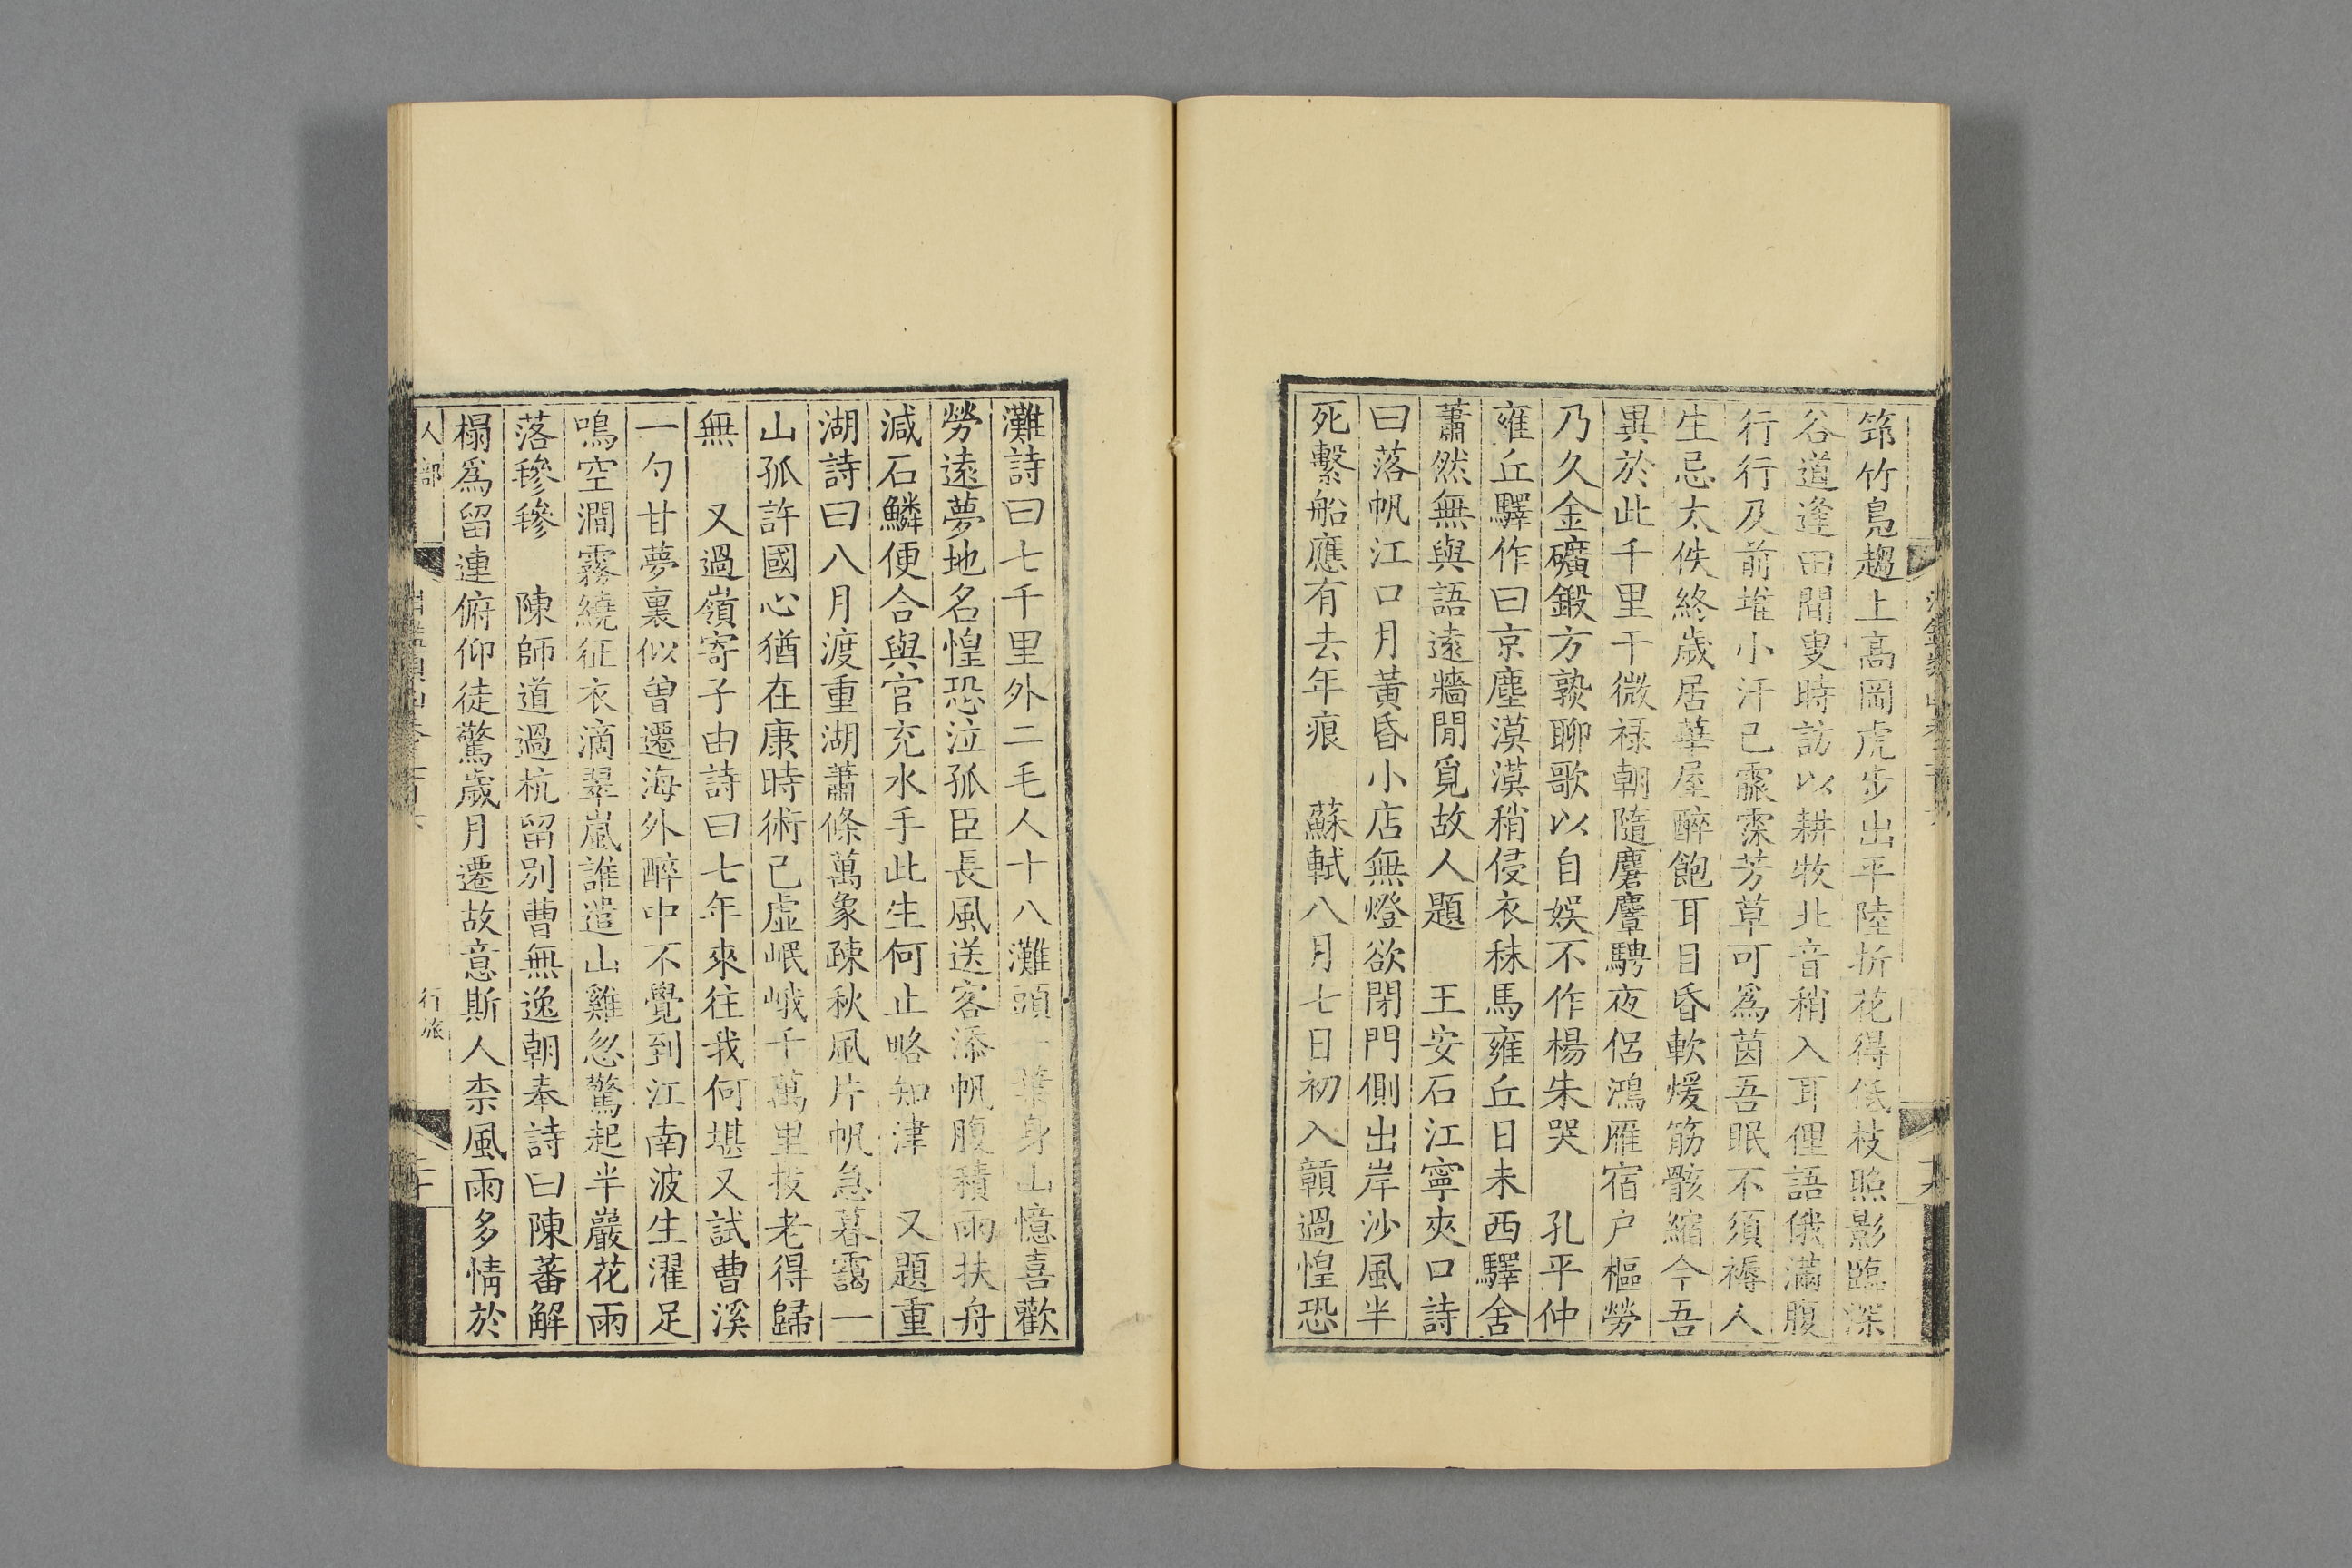 筇竹鳬趨上高岡虎步出平陸折花得低枝照影臨深
谷道逢田間叟時訪以耕牧北音稍入耳俚語俄滿腹
行行及前堆小汗已霢霂芳草可爲茵吾眠不須褥人
生忌太佚終歲居華屋醉飽耳目昏軟煖筋骸縮今吾
異於此千里干微祿朝隨麏麞騁夜侶鴻雁宿户樞勞
乃久金礦鍛方孰聊歌以自娱不作楊朱哭　孔平仲
雍丘驛作曰京塵漠漠稍侵衣秣馬雍丘日未西驛舍
蕭然無與語遠牆閒覓故人題　王安石江寧夾口詩
曰落帆江口月黄昏小店無燈欲閉門側出岸沙風半
死繫船應有去年痕　蘇軾八月七日初入贑過惶恐
灘詩曰七千里外二毛人十八灘頭一葉身山憶喜歡
勞遠夢地名惶恐泣孤臣長風送客添帆腹積雨扶舟
減石鱗便合與官充水手此生何止略知津　又題重
湖詩曰八月渡重湖蕭條萬象疎秋風片帆急暮靄一
山孤許國心猶在康時術已虛岷峨千萬里投老得歸
無　又過嶺寄子由詩曰七年來往我何堪又試曹溪
一勺甘夢裏似曾遷海外醉中不覺到江南波生濯足
鳴空澗霧繞征衣滴翠嵐誰遣山雞忽驚起半巖花雨
落毿毿　陳師道過杭留別曹無逸朝奉詩曰陳蕃解
榻爲留連俯仰徒驚歲月遷故意斯人柰風雨多情於
人部
行旅